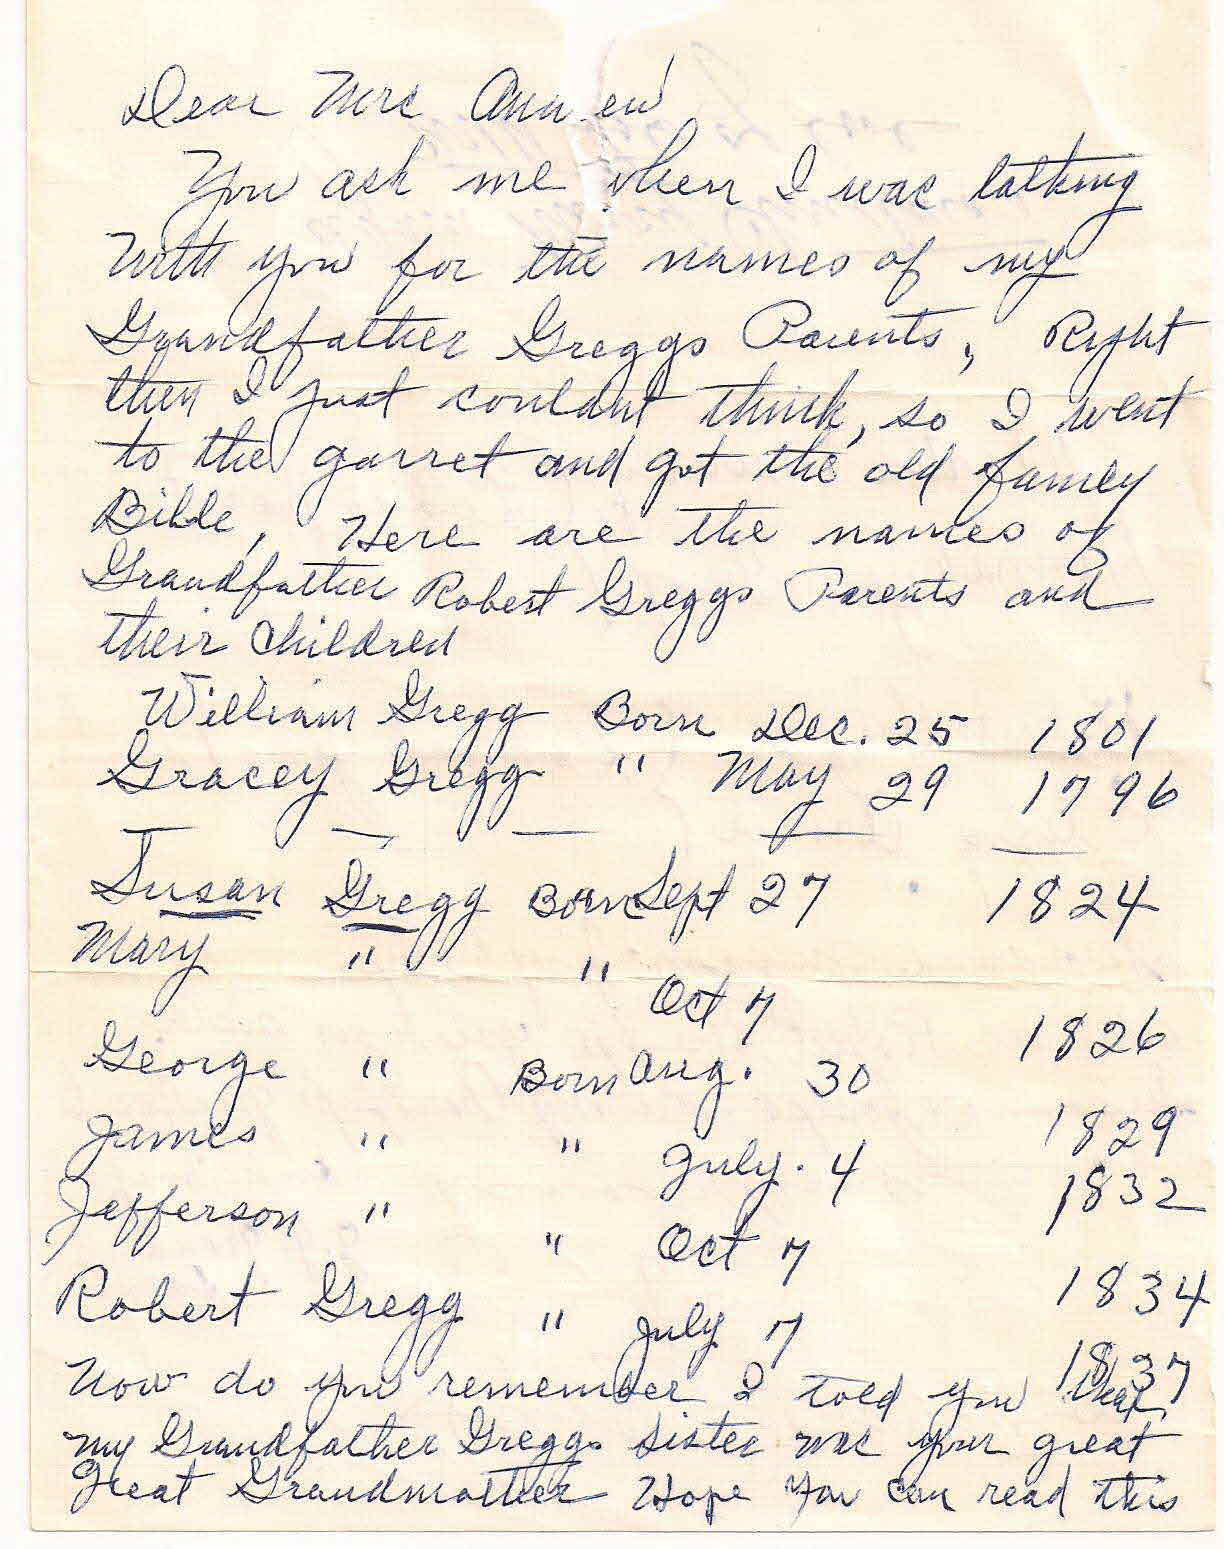 Dear Mrs
You ask me when I was talking
With you for the names of my
Grandfather Greggs Parents, Right
then I just couldnt think, so I went
to the garret and got the old famey
Bible, Here are the names of
Grandfather Robert Greggs Parents and
their Children
William Gregg Born Dec. 25 1801
Gracey Gregg " May 29 1796
— — — — —
Susan Gregg Born Sept 27 1824
Mary " " Oct 7 1826
George " Born Aug. 30 1829
James " " July. 4 1832
Jefferson " " Oct 7 1834
Robert Gregg " July 7 1837
Now do you remember I told you that
my Grandfather Greggs Sister was your great
great Grandmother Hope You can read this